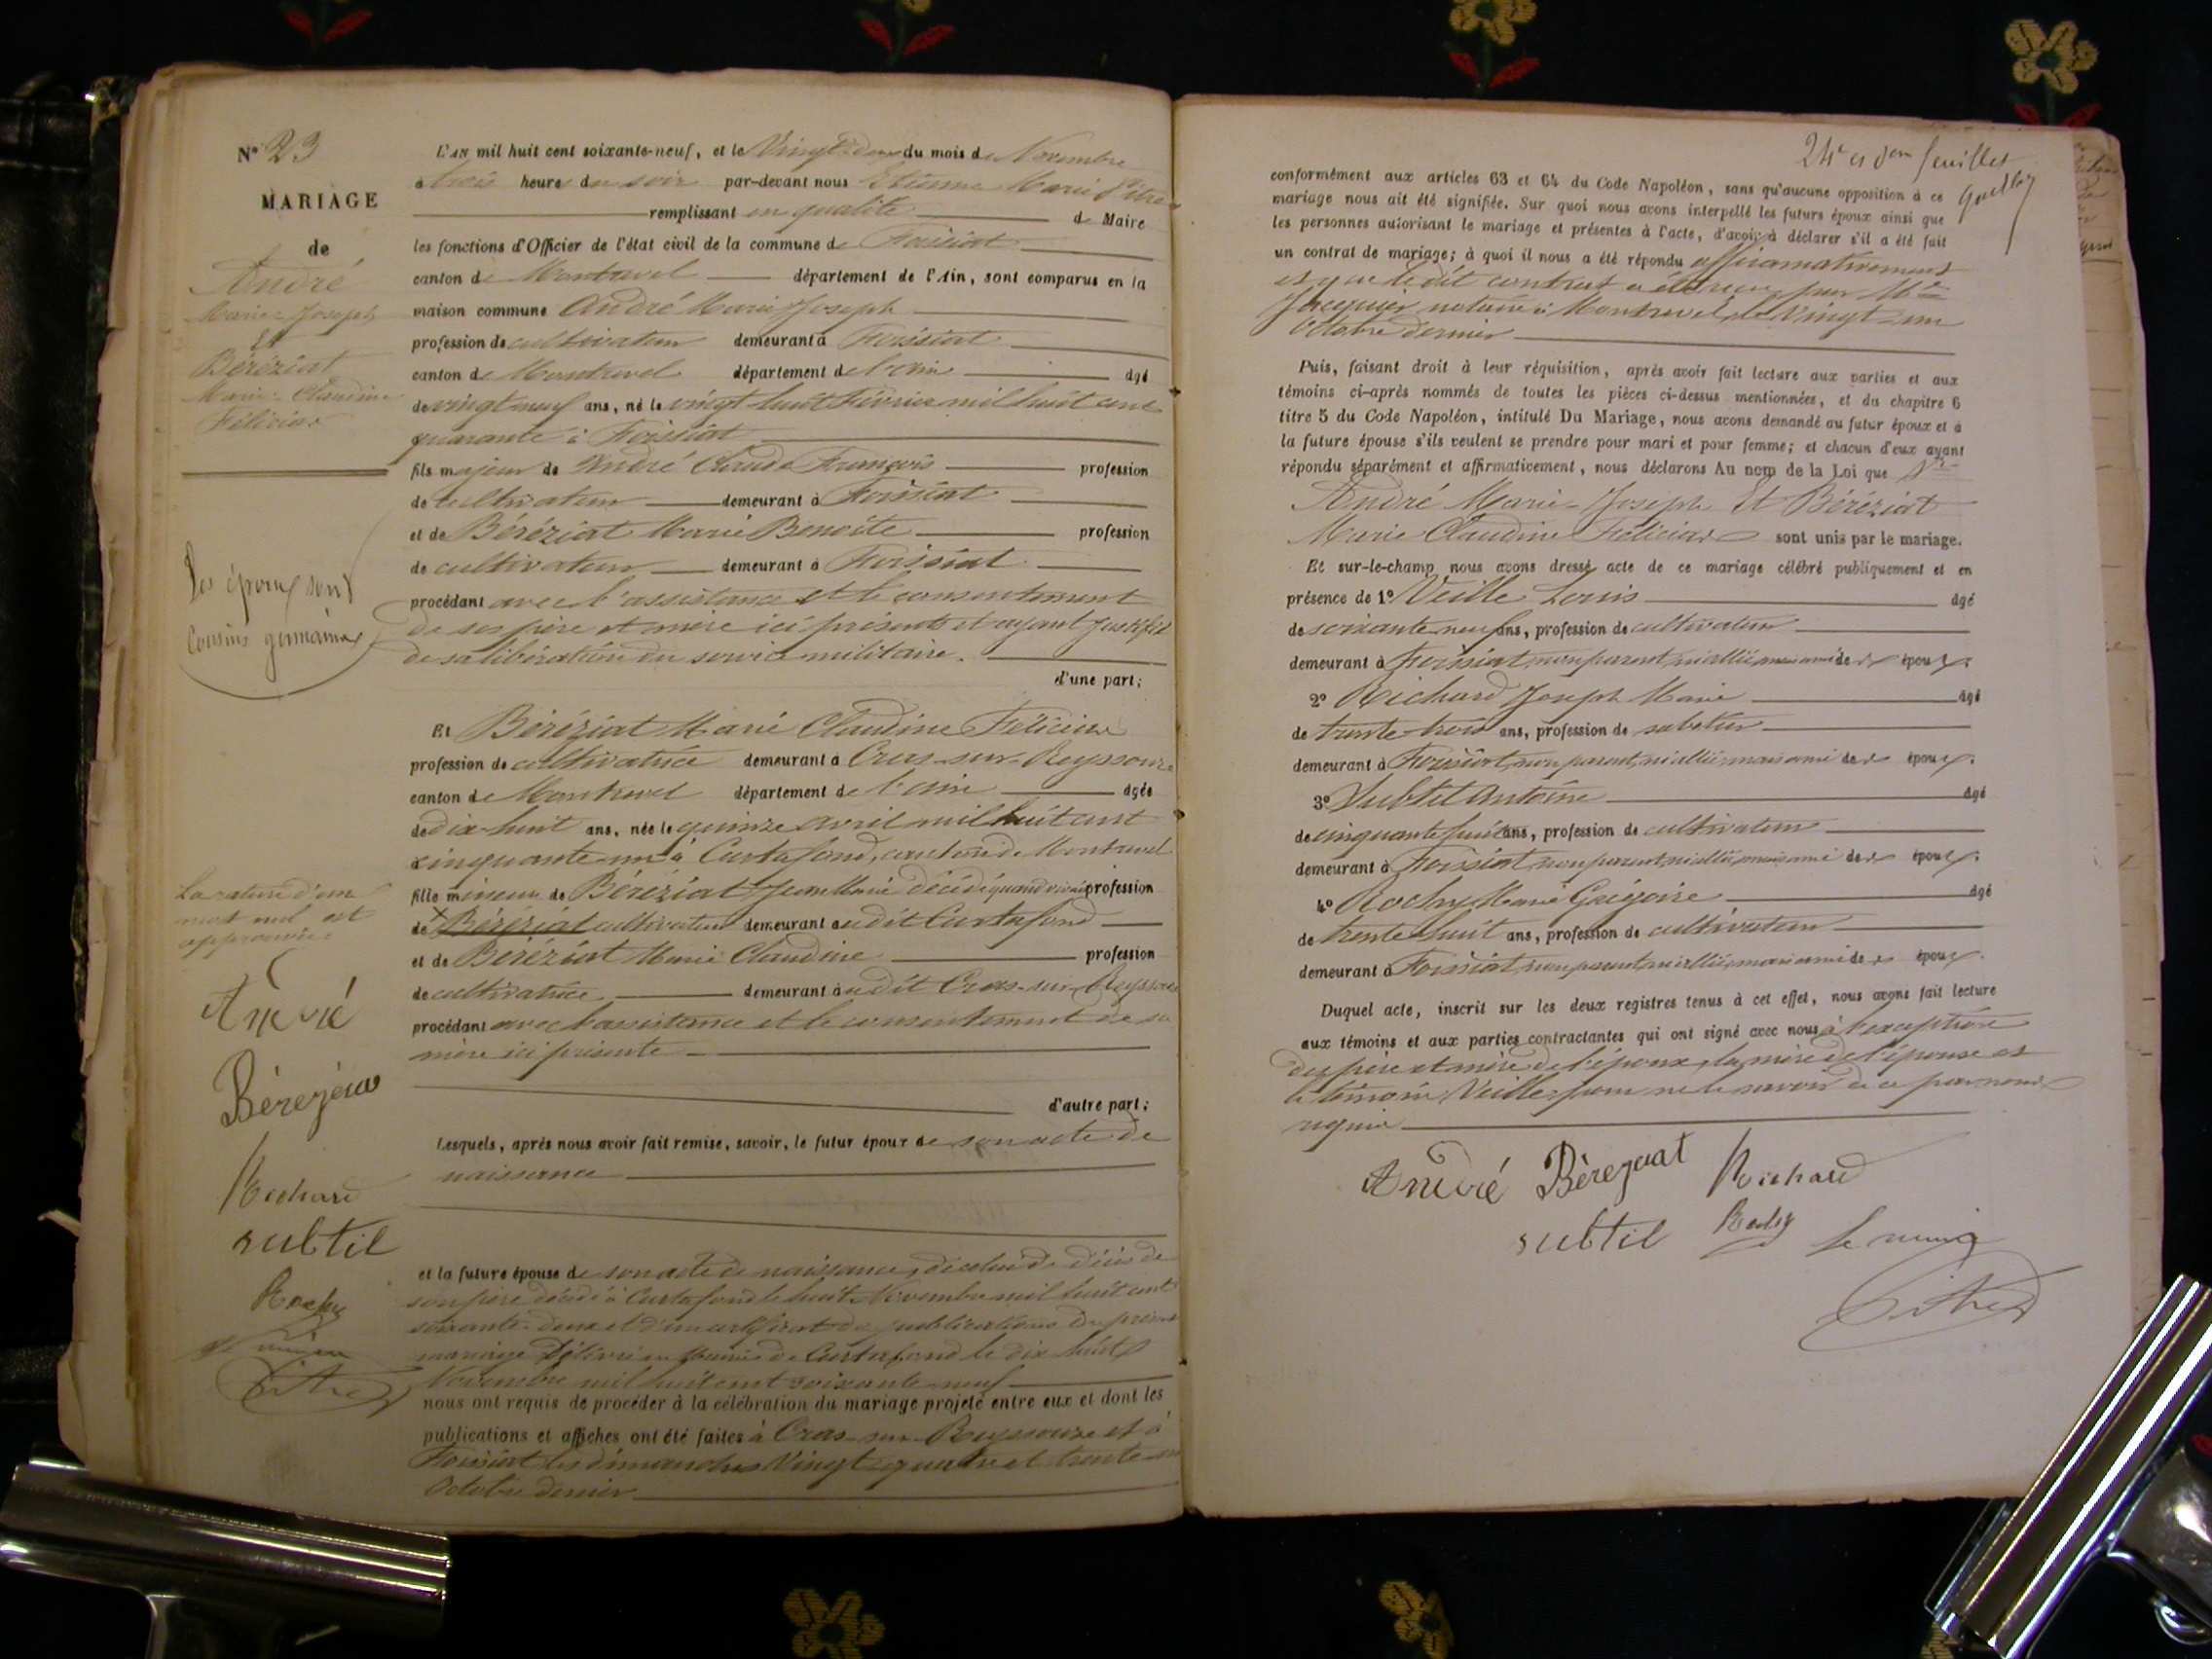 N° 23
MARIAGE
de
André
Marie-Joseph
Et
Béréziat
Marie-Claudine
Les époux sont
Cousins germains
La rature d'un
mot nul est
approuvée
André
Richard
subtil
Le maire
L'AN mil huit cent soixante-neuf, et le Vingt-deux du mois de Novembre
à trois heures du soir par-devant nous Etienne Marie Pitre
remplissant en qualité de Maire
les fonctions d'Officier de l'état civil de la commune de Foissiat
canton de Montrevel département de l'Ain, sont comparus en la
maison commune André Marie Joseph
profession de cultivateur demeurant à Foissiat
canton de Montrevel département de l'ain âgé
de vingt neuf ans, né le vingt-huit Février mil huit cent
quarante à Foissiat
fils majeur de André Claude François profession
de cultivateur demeurant à Foissiat
et de Béréziat Marie Benoite profession
de cultivateur demeurant à Foissiat
procédant avec l'assistance et le consentement
de ses père et mère ici présents et ayant justifié
de sa libération du service militaire.
d'une part;
Et Béréziat Marie Claudine
profession de cultivatrice demeurant à Cras-sur-Reyssouze
canton de Montrevel département de l'ain âgée
de dix-huit ans, née le quinze avril mil huit cent
cinquante-un à Curtafond, canton de Montrevel
fille mineure de Béréziat Jean Marie décédé quand vivait profession
de Béréziat cultivateur demeurant audit Curtafond
et de Béréziat Marie Claudine profession
de cultivatrice demeurant audit Cras-sur-Reyssouze
procédant avec l'assistance et le consentement de sa
mère ici présente
d'autre part;
Lesquels, après nous avoir fait remise, savoir, le futur époux de son acte de
naissance
et la future épouse de son acte de naissance, de celui de décès de
son père décédé à Curtafond le huit Novembre mil huit cent
soixante-deux et d'un certificat de publications du présent
mariage délivré en Mairie de Curtafond le dix huit
Novembre mil huit cent soixante-neuf
nous ont requis de procéder à la célébration du mariage projeté entre eux et dont les
publications et affiches ont été faites à Cras-sur-Reyssouze et à
Foissiat les dimanches Vingt-quatre et trente-un
Octobre dernier
24e et feuillet
conformément aux articles 63 et 64 du Code Napoléon, sans qu'aucune opposition à ce
mariage nous ait été signifiée. Sur quoi nous avons interpellé les futurs époux ainsi que
les personnes autorisant le mariage et présentes à l'acte, d'avoir à déclarer s'il a été fait
un contrat de mariage; à quoi il nous a été répondu affirmativement
et que le dit contrat a été reçu par Me
notaire à Montrevel, le Vingt-un
Octobre dernier
Puis, faisant droit à leur réquisition, après avoir fait lecture aux parties et aux
témoins ci-après nommés de toutes les pièces ci-dessus mentionnées, et du chapitre 6
titre 5 du Code Napoléon, intitulé Du Mariage, nous avons demandé au futur époux et à
la future épouse s'ils veulent se prendre pour mari et pour femme; et chacun d'eux ayant
répondu séparément et affirmativement, nous déclarons Au nom de la Loi que
André Marie-Joseph Et Béréziat
Marie Claudine sont unis par le mariage.
Et sur-le-champ nous avons dressé acte de ce mariage célébré publiquement et en
présence de 1° Veille Louis âgé
de soixante neuf ans, profession de cultivateur
demeurant à Foissiat, non parent, ni allié, mais ami des époux.
2° Richard Joseph Marie âgé
de trente-trois ans, profession de sabotier
demeurant à Foissiat, non parent, ni allié, mais ami des époux.
3° Subtil Antoine âgé
de cinquante huit ans, profession de cultivateur
demeurant à Foissiat, non parent, ni allié, mais ami des époux.
4° Rochy Marie Grégoire âgé
de trente-huit ans, profession de cultivateur
demeurant à Foissiat, non parent, ni allié, mais ami des époux.
Duquel acte, inscrit sur les deux registres tenus à cet effet, nous avons fait lecture
aux témoins et aux parties contractantes qui ont signé avec nous à l'exception
des père et mère de l'époux, la mère de l'épouse et
le témoin Veille pour ne le savoir de ce par nous
requis
André Richard
subtil Rochy le maire